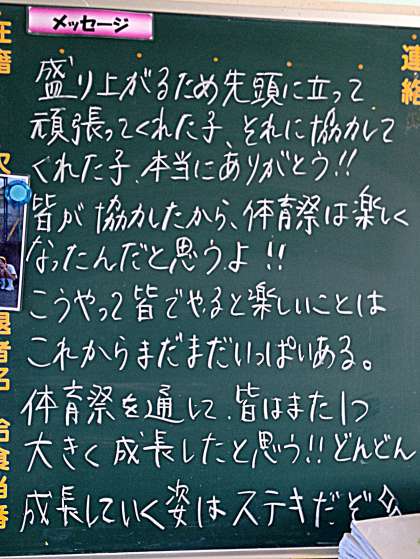 メッセージ
在籍
連絡
欠
退者名
給食当番
盛り上がるため先頭に立って
頑張ってくれた子、それに協力して
くれた子、本当にありがとう!!
皆が協力したから、体育祭は楽しく
なったんだと思うよ!!
こうやって皆でやると楽しいことは
これからまだまだいっぱいある。
体育祭を通して、皆はまた1つ
大きく成長したと思う!!どんどん
成長していく姿はステキだぞ☆